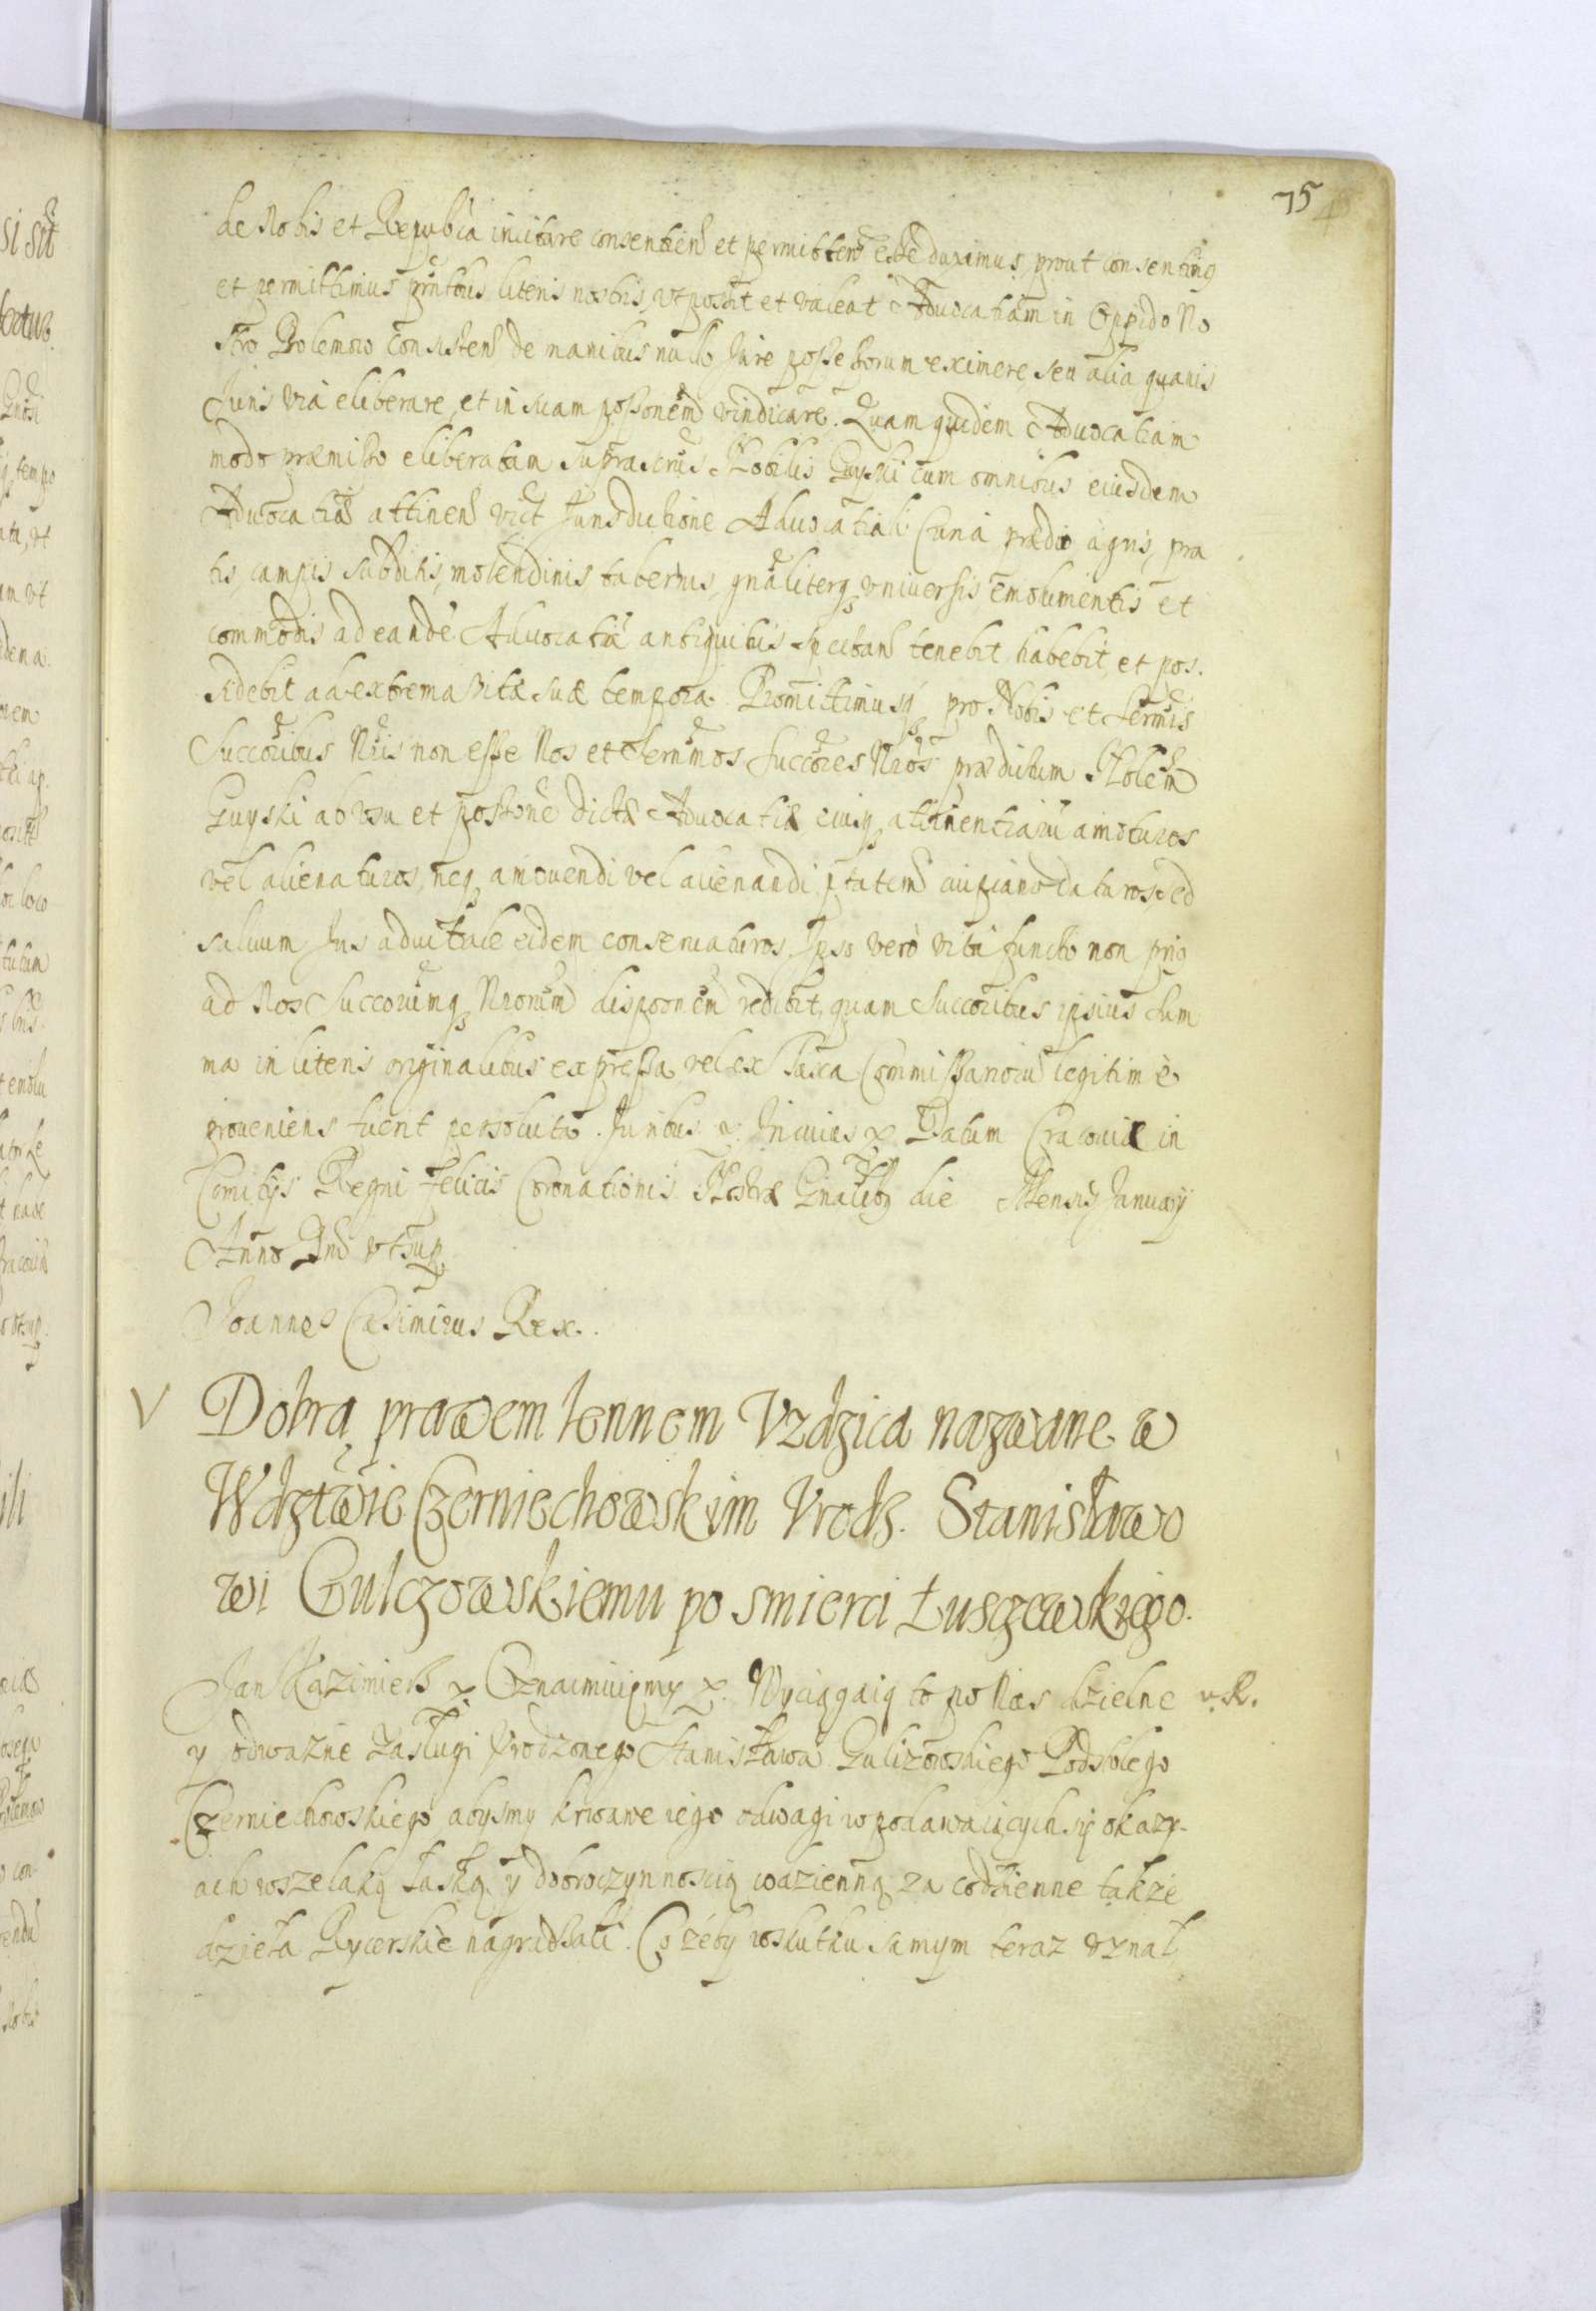 75
de Nobis et Republca incitare consentien et permitten esse duximus, prout consentimg
et permittimus pntibus literis nostris, vt possit et valeat Aduocatiam in Oppido No
stro Bolemow consisten de manibus nullo Jure possessorum eximere seu alia quauis
Juris via eliberare, et in suam possonem vindicare. Quam quidem Aduocatiam
modo præmisso eliberatam suprascrus Nobilis Guyski cum omnibus eiusdem
Aduocatiæ attinen vict Jurisdictione Aduocatiali Curia prædio agris, pra
tis, campis subditis, molendinis tabernis, gnaliterq vniuersis emolumentis et
commodis ad eande Aduocatia antiquitus spectan tenebit habebit, et pos.
sidebit ad extrema vitæ suæ tempora. Promittimusq pro Nobis et Sermis
Succoribus Nris non esse Nos et Sermos Succores Nros prædictum Nobilem
Guyski ab vsu et possone dictæ Aduocatiæ eiusq attinentiaru amoturos
vel alienaturos, neq amouendi vel alienandi ptatem cuipiam daturos, sed
saluum Jus aduitale eidem conseruaturos, Ipso verò vita functo non prig
ad Nos Succorumq Nrorum dispoonem redibit, quam Succoribus ipsius sum
ma in literis originalibus expressa, vel ex Taxa Commissarioru legitimè
proueniens fuerit persoluta. Juribus &. In cuius &. Datum Cracouiæ in
Comitijs Regni felicis Coronationis Nostræ Gnalibq die Mensis January
Anno Dni vt sup.
Joannes Casimirus Rex.
V Dobra prawem lennem Vzdzica nazwane w
Wdztwie Czerniechowskim Vrodz. Stanisławo
wi Gulczowskiemu po smierci Łusczewskiego.
Jan Kazimierz &. Oznaimuiemy &. Wyciągaią to po Nas dzielne v.R.
y odwazne zasługi Vrodzonego Stanisława Gulczowskiego Podstolego
Czerniechowskiego abysmy krwawe iego odwagi w podawaiących się okazy-
ach wszelaką łaską y dobroczynnoscią wdzienną za codzienne takze
dzieła Rycerskie nagradzali. Co zeby w skutku samym teraz vznał